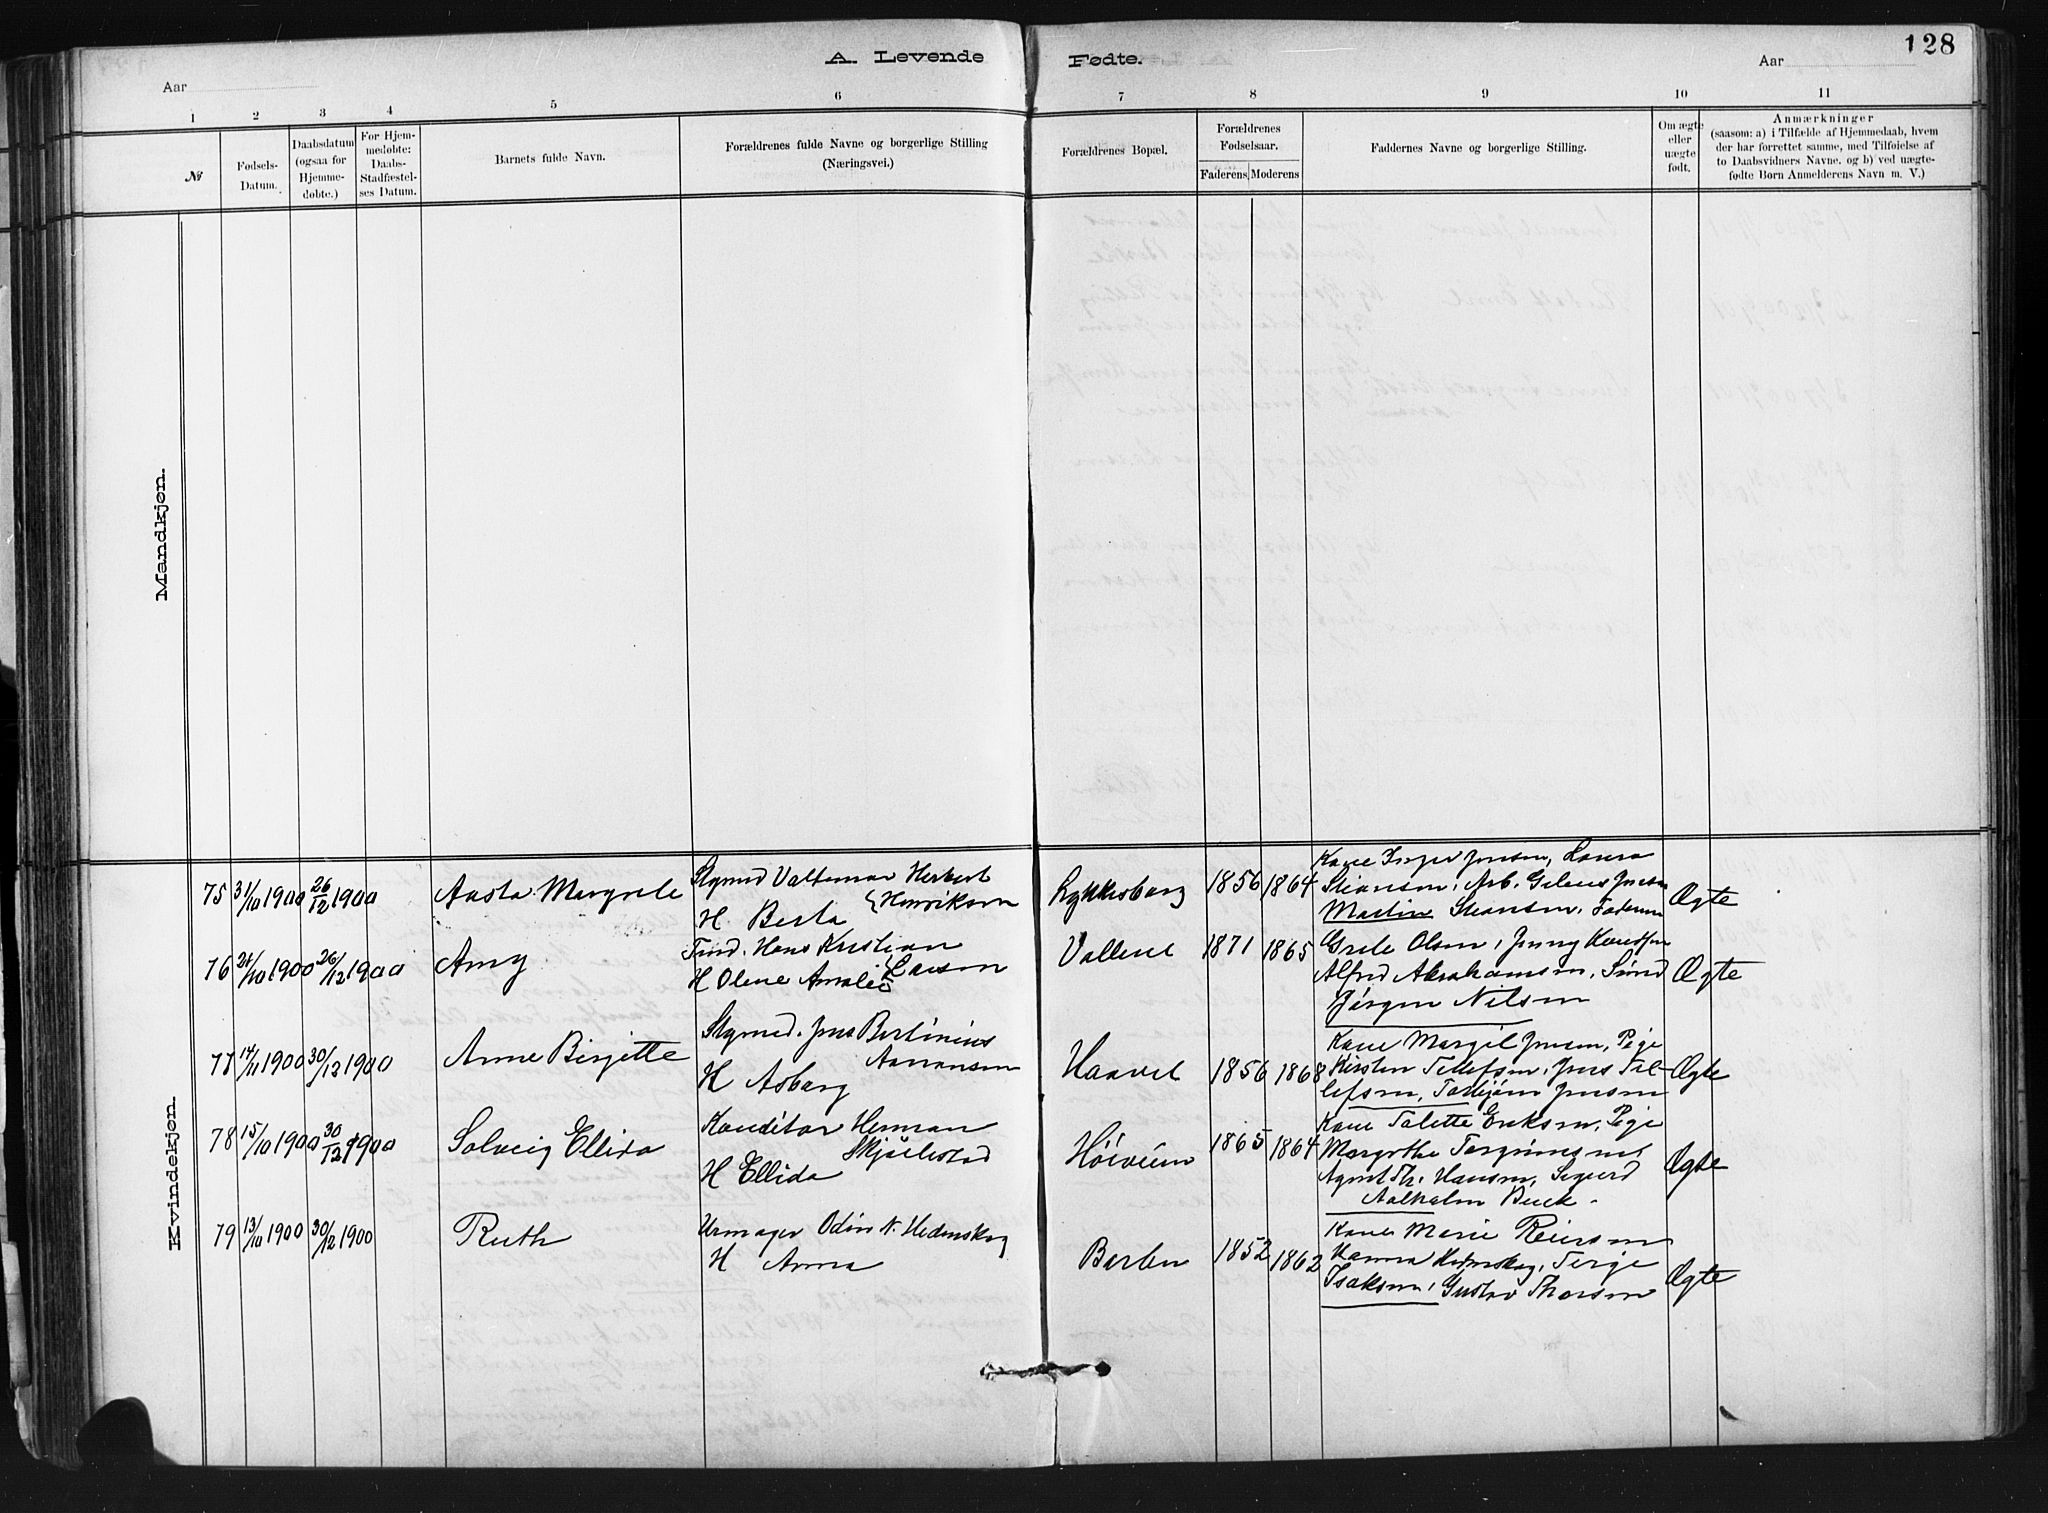 128
A. Levende Fødte.
Aar
Aar
1 2 3 4 5 6 7 8 9 10 11
№
Fødsels-Datum.
Daabsdatum (ogsaa for Hjemmedøbte.)
For Hjemmedøbte: Daabs-Stadfæstelses Datum.
Barnets fulde Navn.
Forældrenes fulde Navne og borgerlige Stilling
(Næringsvei.)
Forældrenes Bopæl.
Forældrenes Fødselsaar.
Faderens Moderens
Faddernes Navne og borgerlige Stilling.
Om ægte eller uægte født.
Anmærkninger
(saasom: a) i Tilfælde af Hjemmedaab, hvem
der har forrettet samme, med Tilføielse af
to Daabsvidners Navne. og b) ved uægte-
fødte Børn Anmelderens Navn m. V.)
Mandkjøn.
Kvindekjøn.
75 31/10 1900 26/12 1900 Aasta Margrete
Valdemar Herbert
Henriksen
H Berta
1856 1864
Kone Inger Jensen,
Martin
Ægte
76 21/10 1900 26/12 1900 Amy
Hans Kristian
H Olene Amalie Larsen
1871 1865
Grete Olsen, Jenny
Alfred Abrahamsen,
Jørgen Nilsen
Ægte
77 14/11 1900 30/12 1900 Anne Birgitte
Jens Bertinius
Aanonsen
H Asborg
1856 1868
Kone Margit Jensen, Pige
Kirsten Tellefsen, Jens Tel-
lefsen, Torbjørn Jensen
Ægte
78 15/10 1900 30/12 1900 Solveig Ellida
Konditor Herman
Skjølestad
H Ellida
1865 1864
Kone Talette Eriksen, Pige
Margrthe
Hansen, Sigurd
Aalholm
Ægte
79 13/10 1900 30/12 1900 Ruth
Urmager Odin N. Hedenskog
H Anna
Barbu
1852 1862
Kone Marie Reiersen
Hanna Hedenskog, Terje
Isaksen, Gustav Thorsen
Ægte